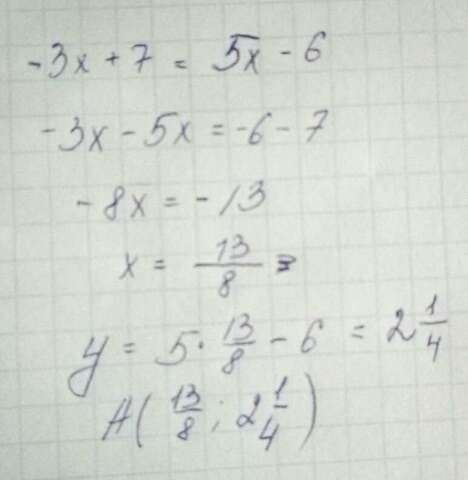 -3x + 7 = 5x - 6
-3x - 5x = -6 - 7
-8x = -13
x = 13/8 =
y = 5 · 13/8 - 6 = 2 1/4
A( 13/8 ; 2 1/4 )